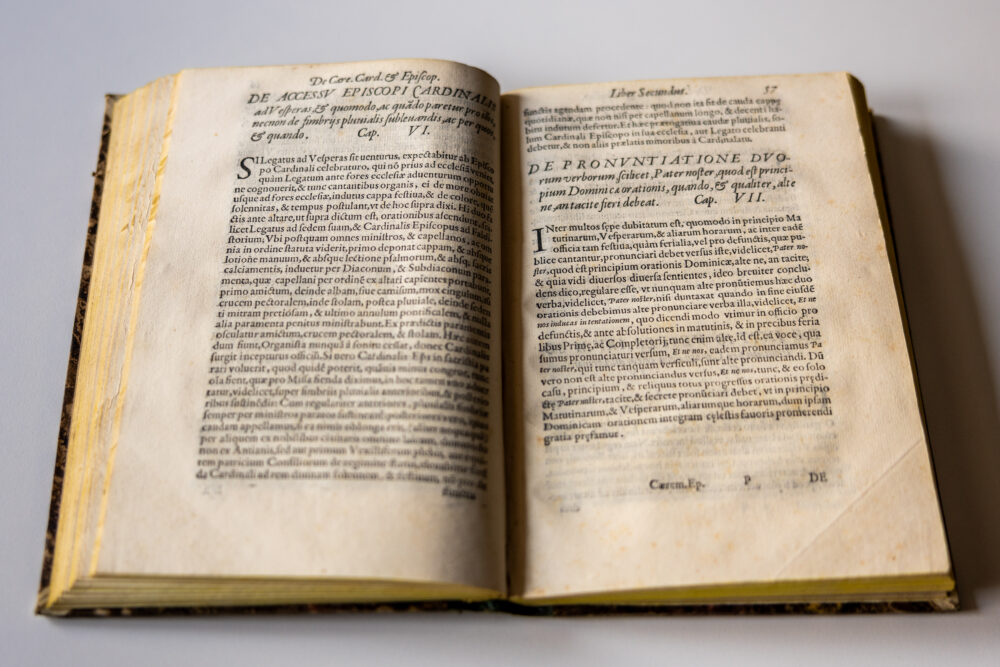 De Cere. Card. & Epiſcop.
DE ACCESSV EPISCOPI CARDINALIS
ad Veſperas, & quomodo, ac quãdo paretur pro illo,
necnon de fimbrijs pluuialis ſubleuandis, ac per quos,
& quando. Cap. VI.
SI Legatus ad Veſperas ſit uenturus, expectabitur ab Epiſco
po Cardinali celebraturo, qui nõ prius ad eccleſiã veniet,
quàm Legatum ante fores eccleſiæ aduenturum opportu
ne cognouerit, & tunc cantantibus organis, ei de more obuiat
uſque ad fores eccleſiæ, indutus cappa feſtiua, & de colore, quẽ
ſolennitas, & tempus poſtulant, vt de hoc ſupra dixi. Hi duo fa
ctis ante altare, ut ſupra dictum eſt, orationibus aſcendunt, ſci
licet Legatus ad ſedem ſuam, & Cardinalis Epiſcopus ad Faldi
ſtorium, Vbi poſtquam omnes miniſtros, & capellanos, ac om
nia in ordine ſtatura viderit, primo deponat cappam, & abſque
lotione manuum, & abſque lectione pſalmorum, & abſq. ſacris
calciamentis, induetur per Diaconum, & Subdiaconum para
menta, quæ capellani per ordinẽ ex altari capientes portabunt,
primo amictum, deinde albam, ſiue camiſum, mox cingulum,
crucem pectoralem, inde ſtolam, poſtea pluuiale, deinde
ti mitram pretioſam, & ultimo annulum pontificalem, & nulla
alia paramenta penitus miniſtrabunt. Ex prædictis paramentis
oſculatur amictum, crucem pectoralem, & ſtolam. Hæc
dum fiunt, Organiſta nunquã à ſonitu ceſſat, donec Cardinalis
ſurgit incepturus officiũ. Si vero Cardinalis Epſ in ſacriſtia pa
rari voluerit, quod quidẽ poterit, quãuis minus congruat, tunc
ola fient, quæ pro Miſſa fienda diximus, in hoc tamen
tatur, videlicet, ſuper fimbrijs pluuialis anterioribus, & poſterio
ribus ſuſtinẽdis: Cum regulariter anteriores, pluuialis fimbriæ
ſemper per miniſtros paratos ſuſtineant, poſteriores vero, quam
caudam appellamus, ſi ea nimis oblonga erit,
per aliquem ex nobilibus ciuitatis omnino laicum,
non ex Antianis, ſed aut primum Vexilliferum
tem patricium Conſiliorum de regimine
da Cardinali ad rem diuinam
functis
Liber Secundus. 57
functis agendam procedente: quod non ita fit de cauda cappę
quotidianæ, quæ non niſi per capellanum longo, & decenti ha
bitu indutum defertur. Et hæc prærogatiua caudæ pluuialis, ſo
lum Cardinali Epiſcopo in ſua eccleſia, aut Legato celebranti
debetur, & non alijs prælatis minoribus à Cardinalatu.
DE PRONVNTIATIONE DVO-
rum verborum ſcilicet, Pater noſter, quod eſt princi-
pium Dominicæ orationis, quando, & qualiter, alte
ne, an tacite fieri debeat. Cap. VII.
INter multos ſępe dubitatum eſt, quomodo in principio Ma
tutinarum, Veſperarum, & aliarum horarum, ac inter eadẽ
officia tam feſtiua, quàm ferialia, vel pro defunctis, quæ pu-
blice cantantur, pronunciari debet verſus iſte, videlicet, Pater no-
ſter, quod eſt principium orationis Dominicæ, alte ne, an tacite,
& quia vidi diuerſos diuerſa ſentientes, ideo breuiter conclu-
dens dico, regulare eſſe, vt nunquam alte pronuntiemus hæc duo
verba, videlicet, Pater noſter, niſi duntaxat quando in fine eiuſdẽ
orationis debebimus alte pronunciare verba illa, videlicet, Et ne
nos inducas in tentationem, quo dicendi modo vtimur in officio pro
defunctis, & ante abſolutiones in matutinis, & in precibus feria
libus Primę, ac Completorij, tunc enim alte, id eſt, ea voce, qua
ſumus pronunciaturi verſum, Et ne nos, eadem pronunciamus Pa
ter noſter, qui tunc tanquam verſiculi, ſunt alte pronunciandi. Dũ
vero non eſt alte pronunciandus verſus, Et ne nos, tunc, & eo ſolo
caſu, principium, & reliquus totus progreſſus orationis prędi-
ctę Pater noſter, tacite, & ſecrete pronunciari debet, vt in principio
Matutinarum, & Veſperarum, aliarumque horarum, dum ipſam
Dominicam orationem integram cęleſtis fauoris promerendi
gratia pręfamur.
Cærem. Ep. P DE